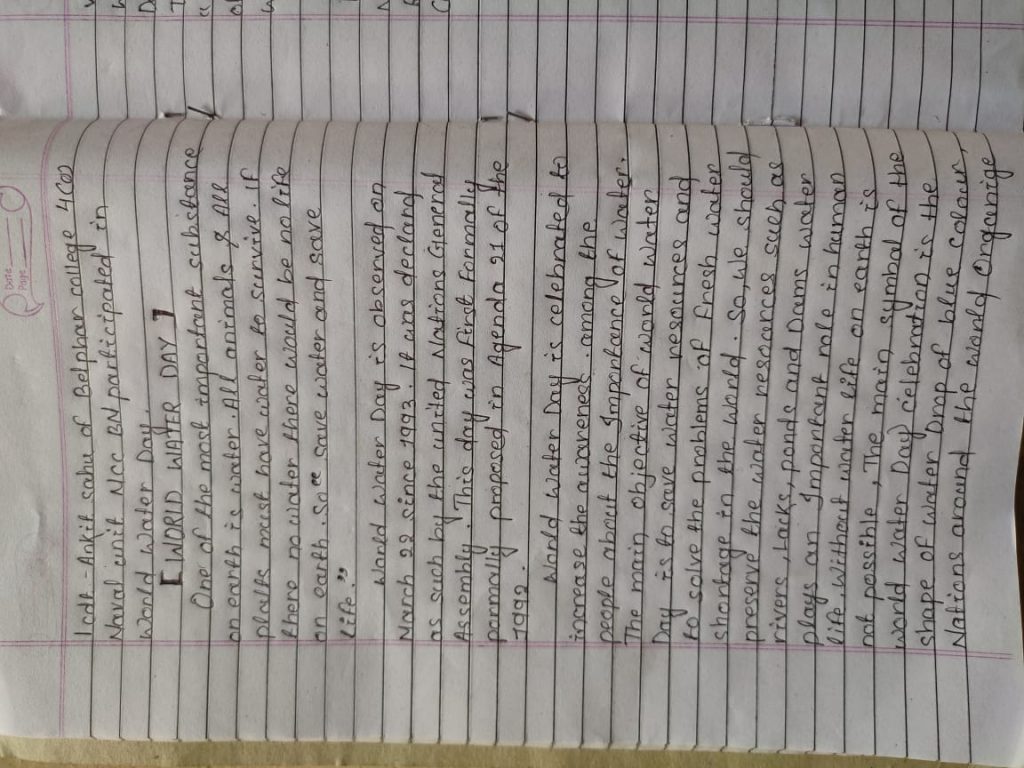 Date
Page
1cdt-Ankit sahu of Belphar college 4(o)
Naval unit Ncc BN participated in
World Water Day.
[ WORLD WATER DAY ]
One of the most important substance
on earth is water. All animals & All
plats must have water to survive. If
there no water there would be no life
on earth. so "" save water and save
life."
World Water Day is observed on
March 22 since 1993. It was declared
as such by the united Nations General
Assembly. This day was first formally
pormally proposed in Agenda 21 of the
1992.
World Water Day is celebrated to
increase the awareness among the
people about the Importance of water.
The main objective of world water
Day is to save water resources and
to solve the problems of fresh water
shortage in the world. So, we should
preserve the water resources such as
rivers, Lacks, ponds and Dams water
plays an Important role in human
life without water life on earth is
not possible, The main symbol of the
world water Day) celebration is the
shape of water Drop of blue colour,
Nations around the world Organige